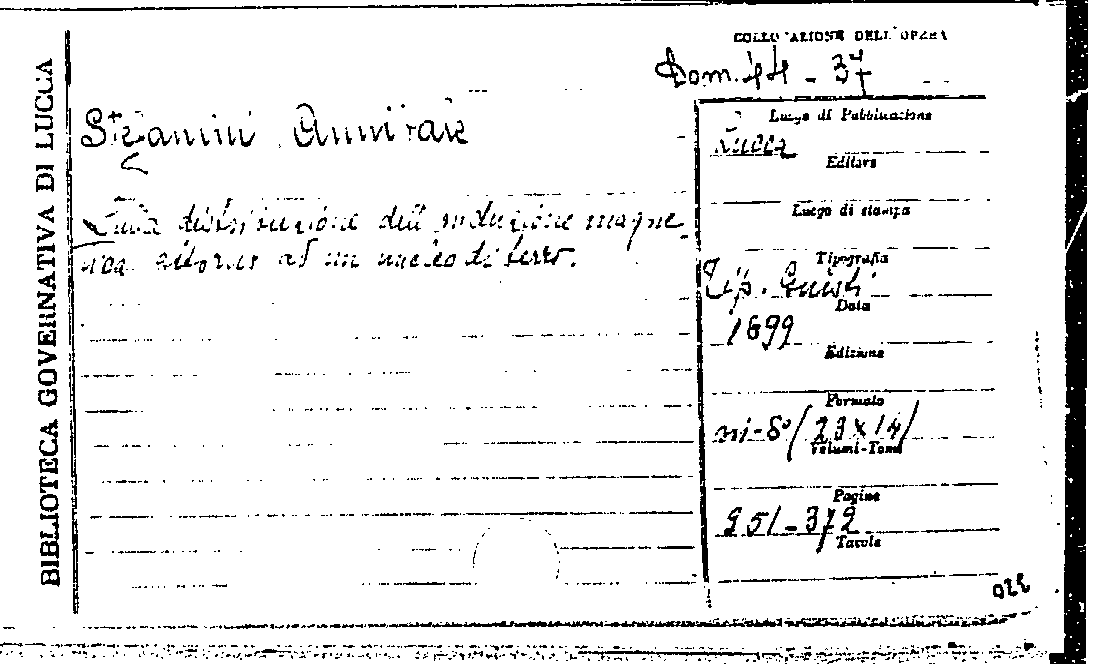 BIBLIOTECA GOVERNATIVA DI LUCCA
COLLOCAZIONE DELL'OPERA
Dom. 44 - 37
Stefanini Annibale
Sulla distribuzione dell'induzione magne-
tica attorno ad un nucleo di ferro.
Luogo di Pubblicazione
Lucca
Editore
Luogo di stampa
Tipografia
Tip. Giusti
Data
1899
Edizione
Formato
in-8° (23 x 14)
Volumi-Tomi
Pagine
Tavole